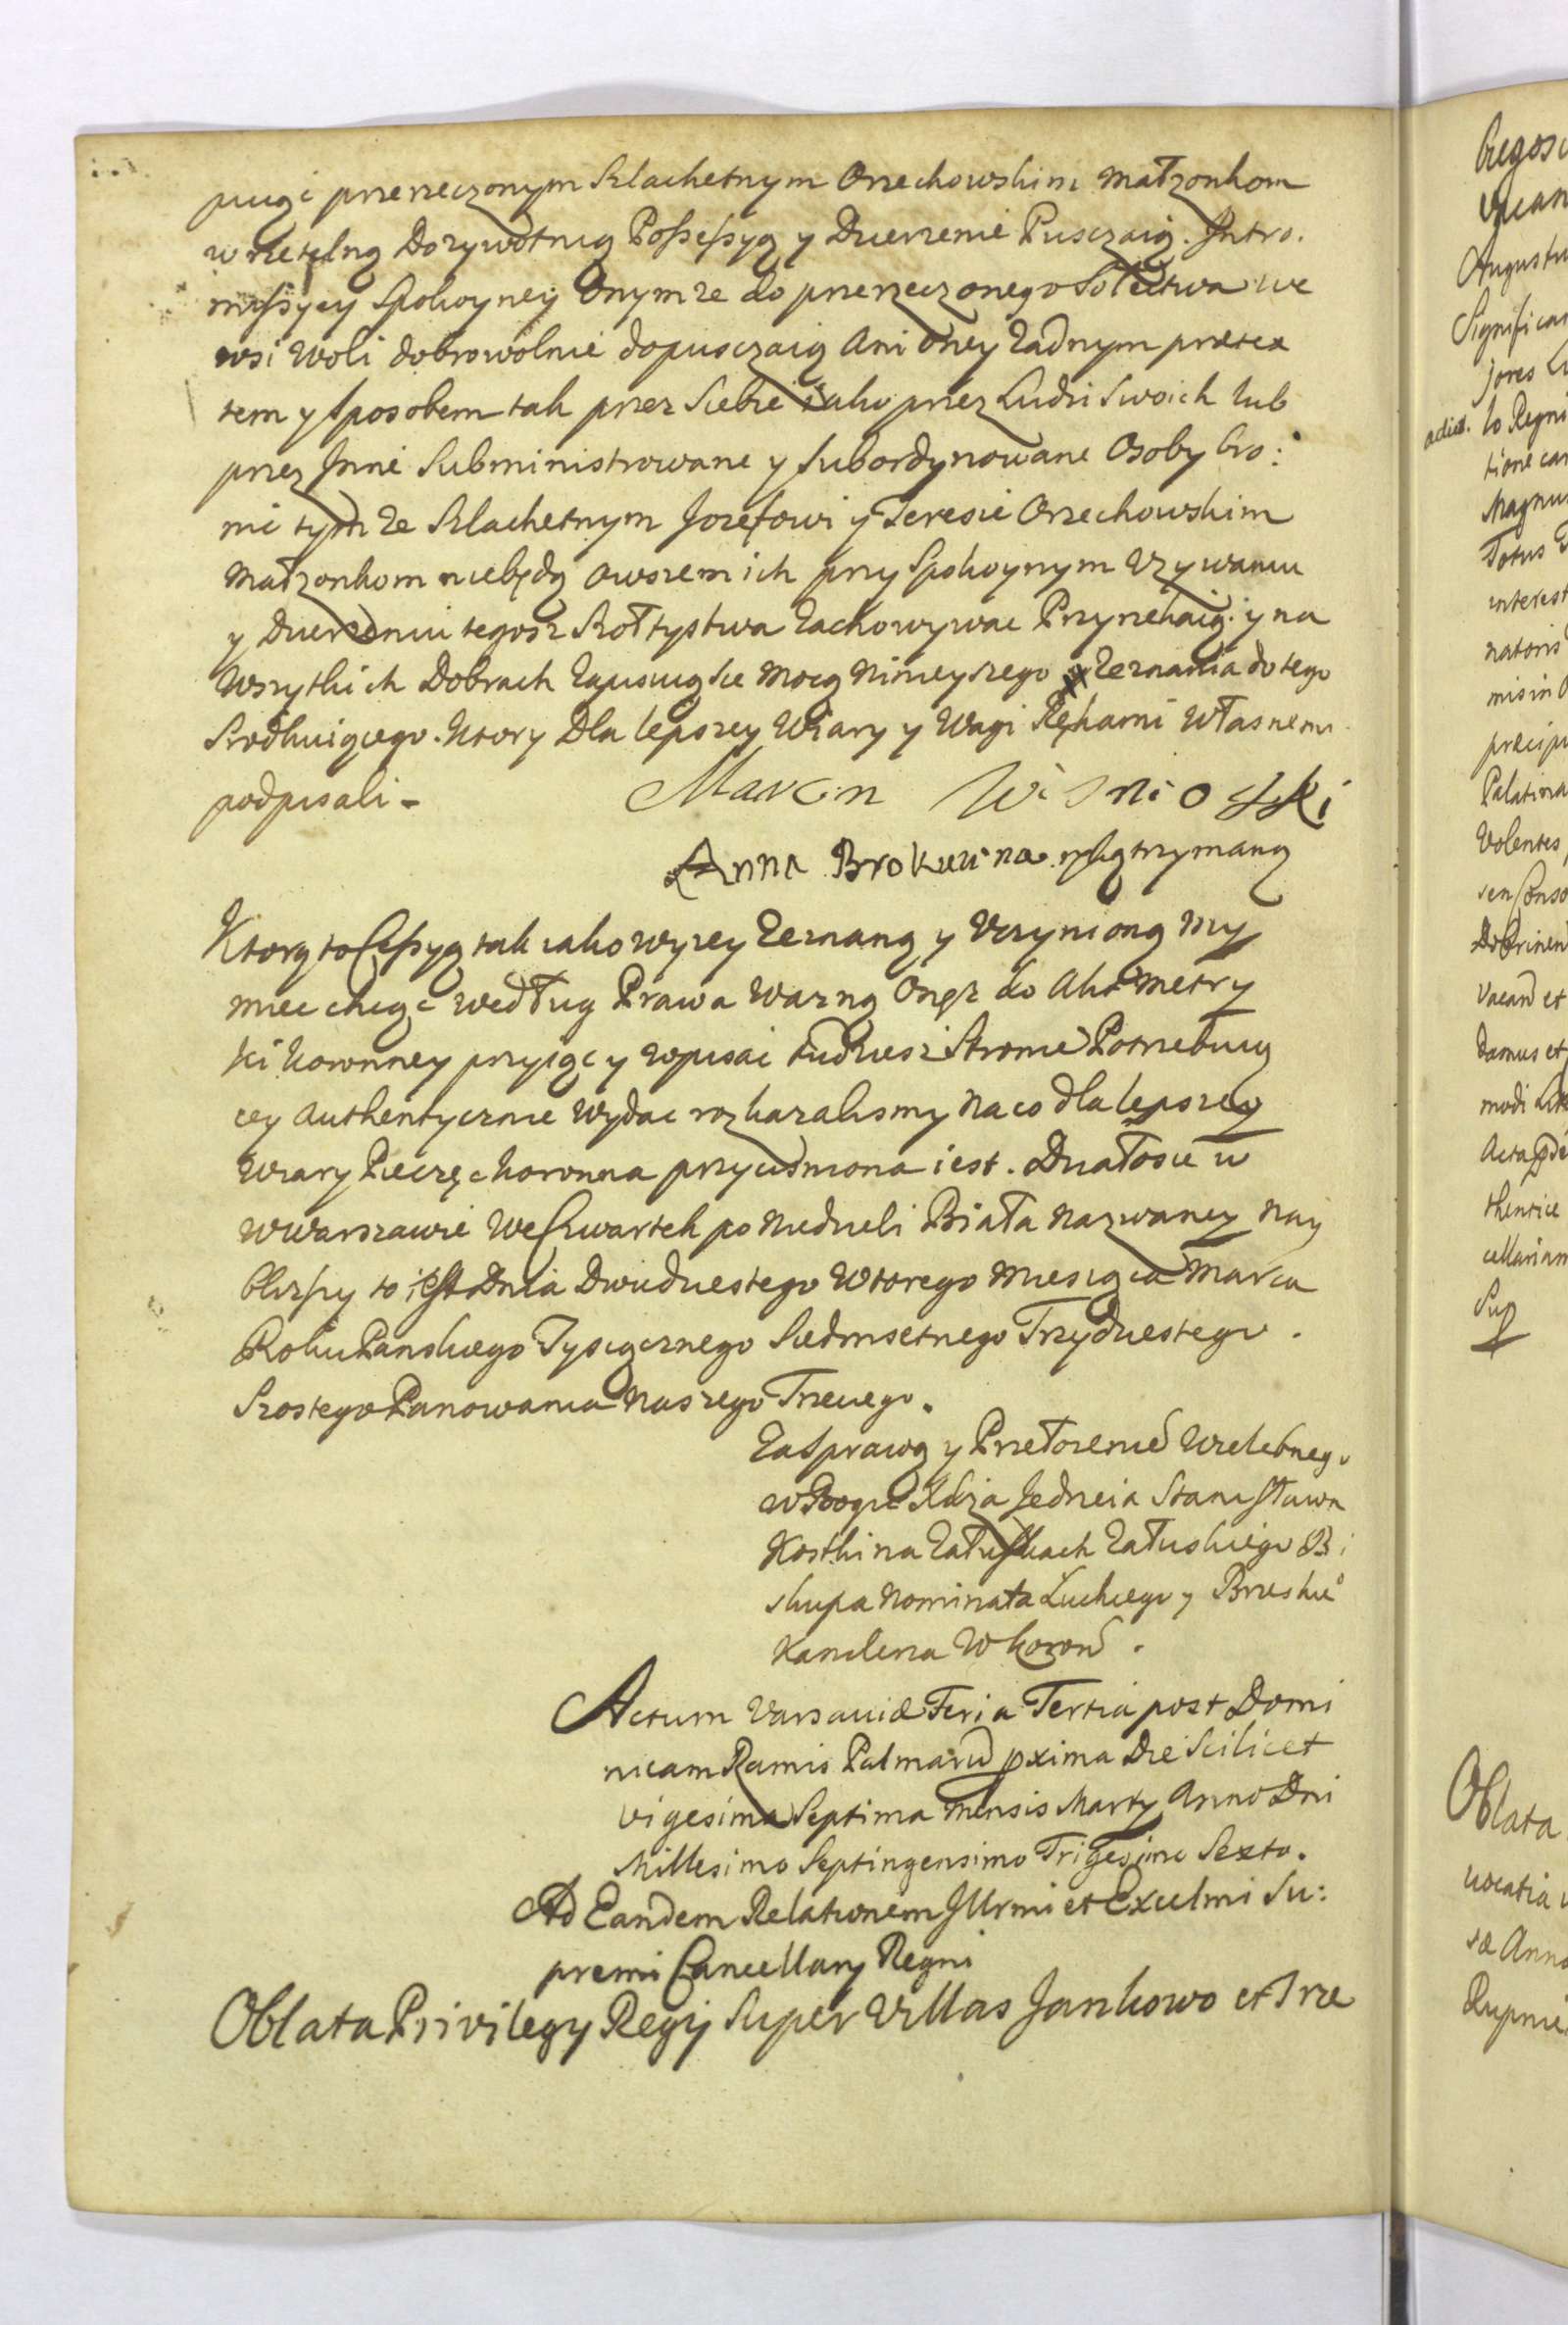 pując przerzeczonym Szlachetnym Orzechowskim Małzonkom
w rzetelną Dozywotnią Possessyą y Dzierzenie Pusczaią. Intro:
missyey Spokoyney Onymze do przerzeczonego Solectwa we
wsi Woli dobrowolnie dopusczaią Ani oney Zadnym prætex
tem y sposobem tak przez Siebie iako przez Ludzi Swoich lub
przez Inne Subministrowane y subordynowane Osoby bro:
nic tymze Szlachetnym Jozefowi y Teresie Orzechowskim
Małzonkom niebędą owszem ich przy Spokoynym Uzywaniu
y Dzierzeniu tegosz Szołtystwa Zachowywac Przyrzekaią. y na
Wszytkich Dobrach Zapisuią sie Mocą Ninieyszego Zeznania do tego
Srodkuiącego. Ktory Dla lepszey Wiary y Wagi Rękami Własnemi
podpisali -
Marcin Wisnioski
Anna Brokuina ręką trzymaną
Ktorą to Cessyą tak iako wyzey Zeznaną y Uczynioną My
miec chcąc według Prawa Wazną Onęz do Akt Metry
ki Koronney przyiąc y wpisac tudziesz Stronie Potrzebuią
cey Authentycznie wydac rozkazalismy Na co dla lepszey
wiary Pieczęc Koronna przycisniona iest. Działo sie w
w Warszawie We Czwartek po Niedzieli Biała Nazwaney Nay
blizszy to iest Dnia Dwudziestego Wtorego Miesiąca Marca
Roku Panskiego Tysiącznego Siedmsetnego Trzydziestego
Szostego Panowania Naszego Trzeciego.
Za Sprawą y Przełozenie Wielebnego
w Bogu Xdza Jedrzeia Stanisława
Kostki na Załuskach Załuskiego Bi
skupa Nominata Łuckiego y Brzeskie
Kanclerza W Koron .
Actum Varsaviæ Feria Tertia post Domi
nicam Ramis Palmarū pxima Die Scilicet
vigesima Septima Mensis Martij Anno Dni
Millesimo Septingensimo Trigesimo Sexto.
Ad Eandem Relationem Illrmi et Excelmi Su:
premi Cancellary Regni
Oblata Privilegy Regij Super Villas Jankowo et Trze
bregosc
Augustu
Significa
jores
to Regni
tione ca
Magnus
Totus
interest
natoris
mis in
præcipu
Palatina
Volentes
Vacan et
damus et
modi
Acta
thentice
cellariam
Oblata
Anno